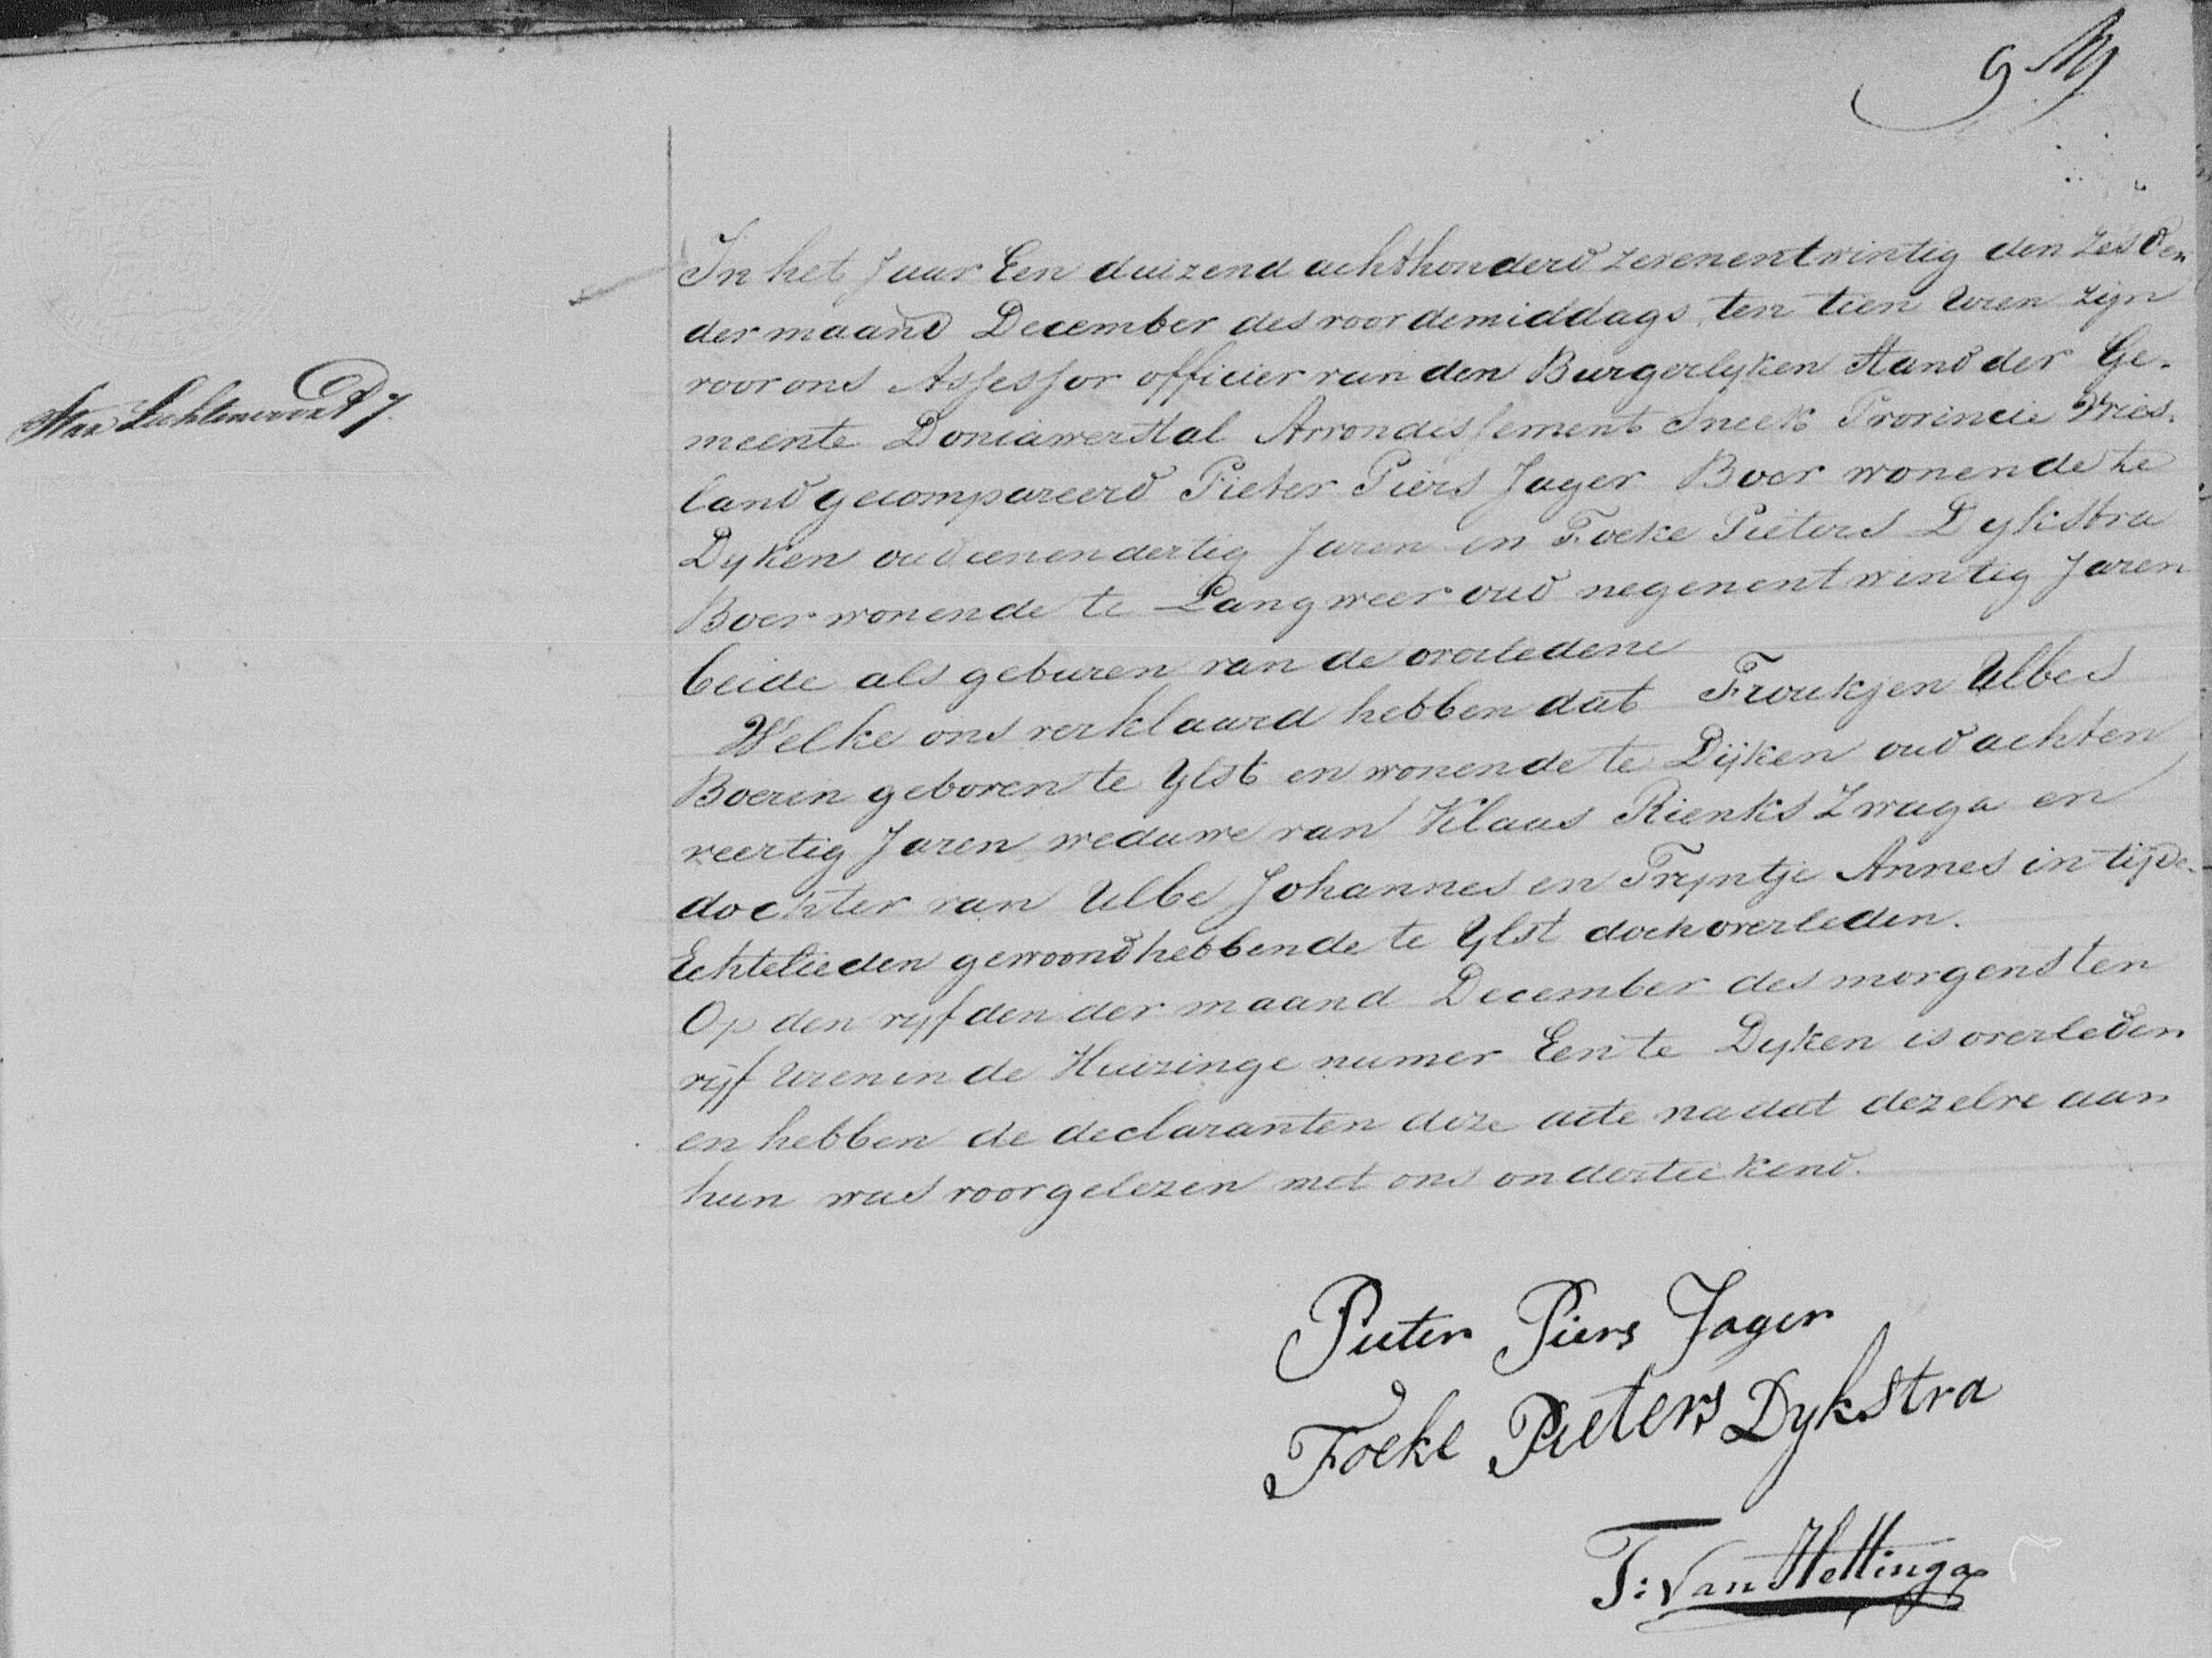 9
In het Jaar Een duizend achthonderd zevenentwintig den zesden
der maand December des voordemiddags ten tien Uren zijn
voor ons Assessor officier van den Burgerlyken Stand der Ge-
meente Doniawerstal Arrondissement Sneek Provincie Vries-
land gecompareerd Pieter Piers Jager Boer wonende te
Dyken oud eenendertig Jaren en Foeke Pieters Dykstra
Boer wonende te Langweer oud negenentwintig Jaren
beide als geburen van de overledene
Welke ons verklaard hebben dat Froukjen Ulbes
Boerin geboren te Ylst en wonende te Dijken oud achten
veertig Jaren weduwe van Klaas Rienks Zwaga en
dochter van Ulbe Johannes en Trijntje Annes in tijde
Echtelieden gewoond hebbende te Ylst doch overleden.
Op den vyfden der maand December des morgens ten
vijf Uren in de Huizinge numer Een te Dyken is overleden
en hebben de declaranten deze acte na dat dezelve aan
hun was voorgelezen met ons onderteekend.
Pieter Piers Jager
Foeke Pieters Dykstra
T: Van Hettinga